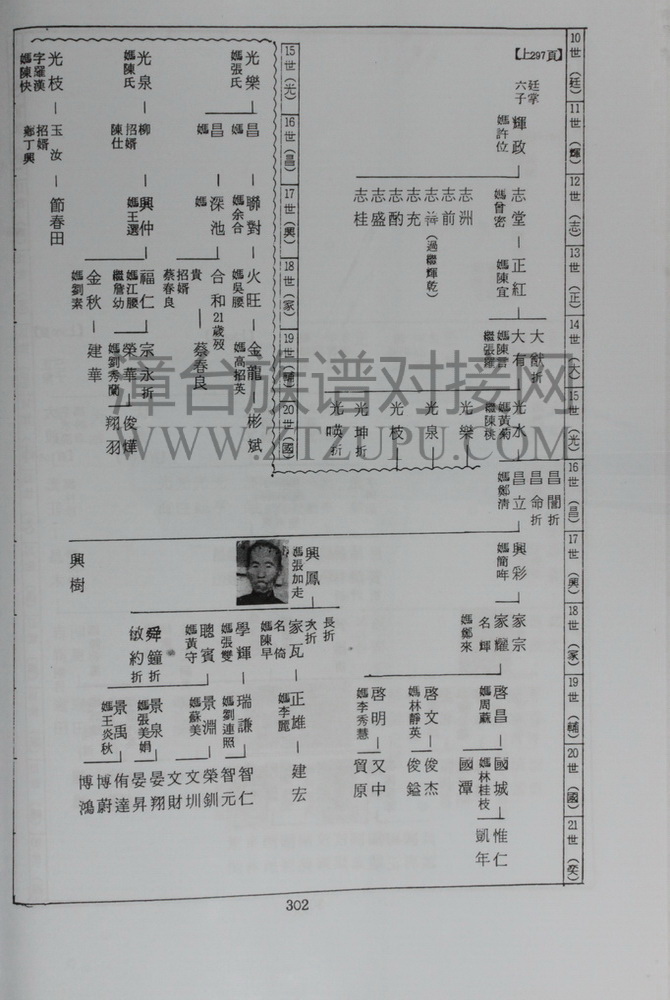 10世(廷)
11世(輝)
12世(志)
13世(正)
14世(大)
15世(光)
16世(昌)
17世(興)
18世(家)
19世(輔)
20世(國)
21世(奕)
【上297頁】
廷掌
六子
輝政
媽許位
志堂
媽曾密
志洲
志前
志善(過繼輝乾)
志充
志酌
志盛
志桂
正紅
媽陳宜
大猷折
大有
繼張
光水
媽黃菊
繼陳桃
光樂
光泉
光枝
光坤折
光暎折
昌閨折
昌命折
昌立
媽鄭清
興彩
媽簡哖
興鳳
媽張加走
興樹
家宗
家耀
名輝
媽鄭來
長折
次折
家瓦
名倚
媽陳早
學輝
媽張雙
聰賓
媽黃守
舜鐘折
敏約折
啓昌
媽周蘁
啓文
媽林靜英
啓明
媽李秀慧
正雄
媽李麗
瑞謙
媽劉連照
景淵
媽蘇美
景泉
媽張美娟
景禹
媽王炎秋
國城
媽林桂枝
國潭
俊杰
俊鎰
又中
貿原
建宏
智仁
智元
榮釧
文圳
文財
晏翔
晏昇
侑達
博蔚
博鴻
惟仁
凱年
15世(光)
16世(昌)
17世(興)
18世(家)
19世(輔)
20世(國)
光樂
媽張氏
昌
媽
昌
媽
聯對
媽余合
深池
媽
火旺
媽吳腰
合和
21歲歿
貴
招婿
蔡春良
金龍
媽高招英
蔡春良
彬斌
光泉
媽陳氏
柳
招婿
陳仕
興仲
媽王選
福仁
媽江腰
繼詹幼
金秋
媽劉素
宗永折
榮華
媽劉秀蘭
建華
俊燁
翔羽
光枝
字羅漢
媽陳快
玉汝
招婿
鄭丁興
節春田
漳台族谱对接网
WWW.ZTZUPU.COM
302